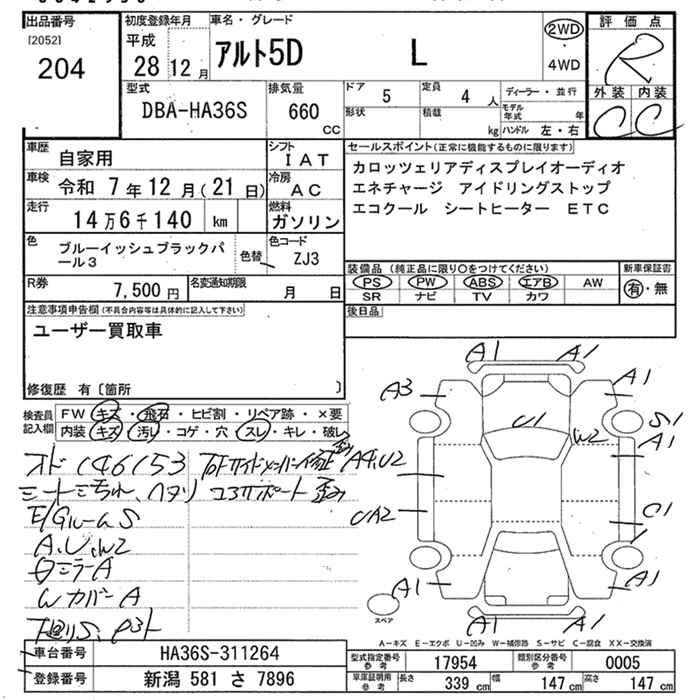 出品番号
[2052]
204
初度登録年月
平成
28年12月
車名・グレード
アルト5D L
2WD
・
4WD
評価点
R
外装 内装
C C
型式
DBA-HA36S
排気量
660
CC
ドア 5
定員 4 人
形状
積載 kg
ディーラー・並行
モデル年式 年
ハンドル 左・右
車歴 自家用
シフト IAT
車検 令和 7年12月(21日)
冷房 AC
走行 14万6千140 km
燃料 ガソリン
色 ブルーイッシュブラックパール3
色替
色コード ZJ3
R券 7,500円
名変通知期限 月 日
セールスポイント(正常に機能するものに限ります)
カロッツェリアディスプレイオーディオ
エネチャージ アイドリングストップ
エコクール シートヒーター ETC
装備品 (純正品に限り○をつけてください)
PS PW ABS エアB AW
SR ナビ TV カワ
新車保証書
有・無
後日品
注意事項申告欄(不具合内容等は具体的に記入して下さい)
ユーザー買取車
修復歴 有〔箇所 〕
検査員記入欄
FW キズ・飛石・ヒビ割・リペア跡・×要
内装 キズ・汚れ・コゲ・穴・スレ・キレ・破れ
オド146153
シートヨゴレ、ヘタリ コアサポート歪み
E/GルームS
A.U.W2
ミラーA
WカバーA
下廻りS
A1 A1
A3 A1
U1 S1
W2 A1
A4,U2
UA2 C1
A1 A1
A1 A1
スペア
A-キズ E-エクボ U-凹み W-補修跡 S-サビ C-腐食 XX-交換済
車台番号 HA36S-311264
登録番号 新潟 581 さ 7896
型式指定番号 参考 17954
類別区分番号 参考 0005
車庫証明用 参考 長さ 339 cm 幅 147 cm 高さ 147 cm